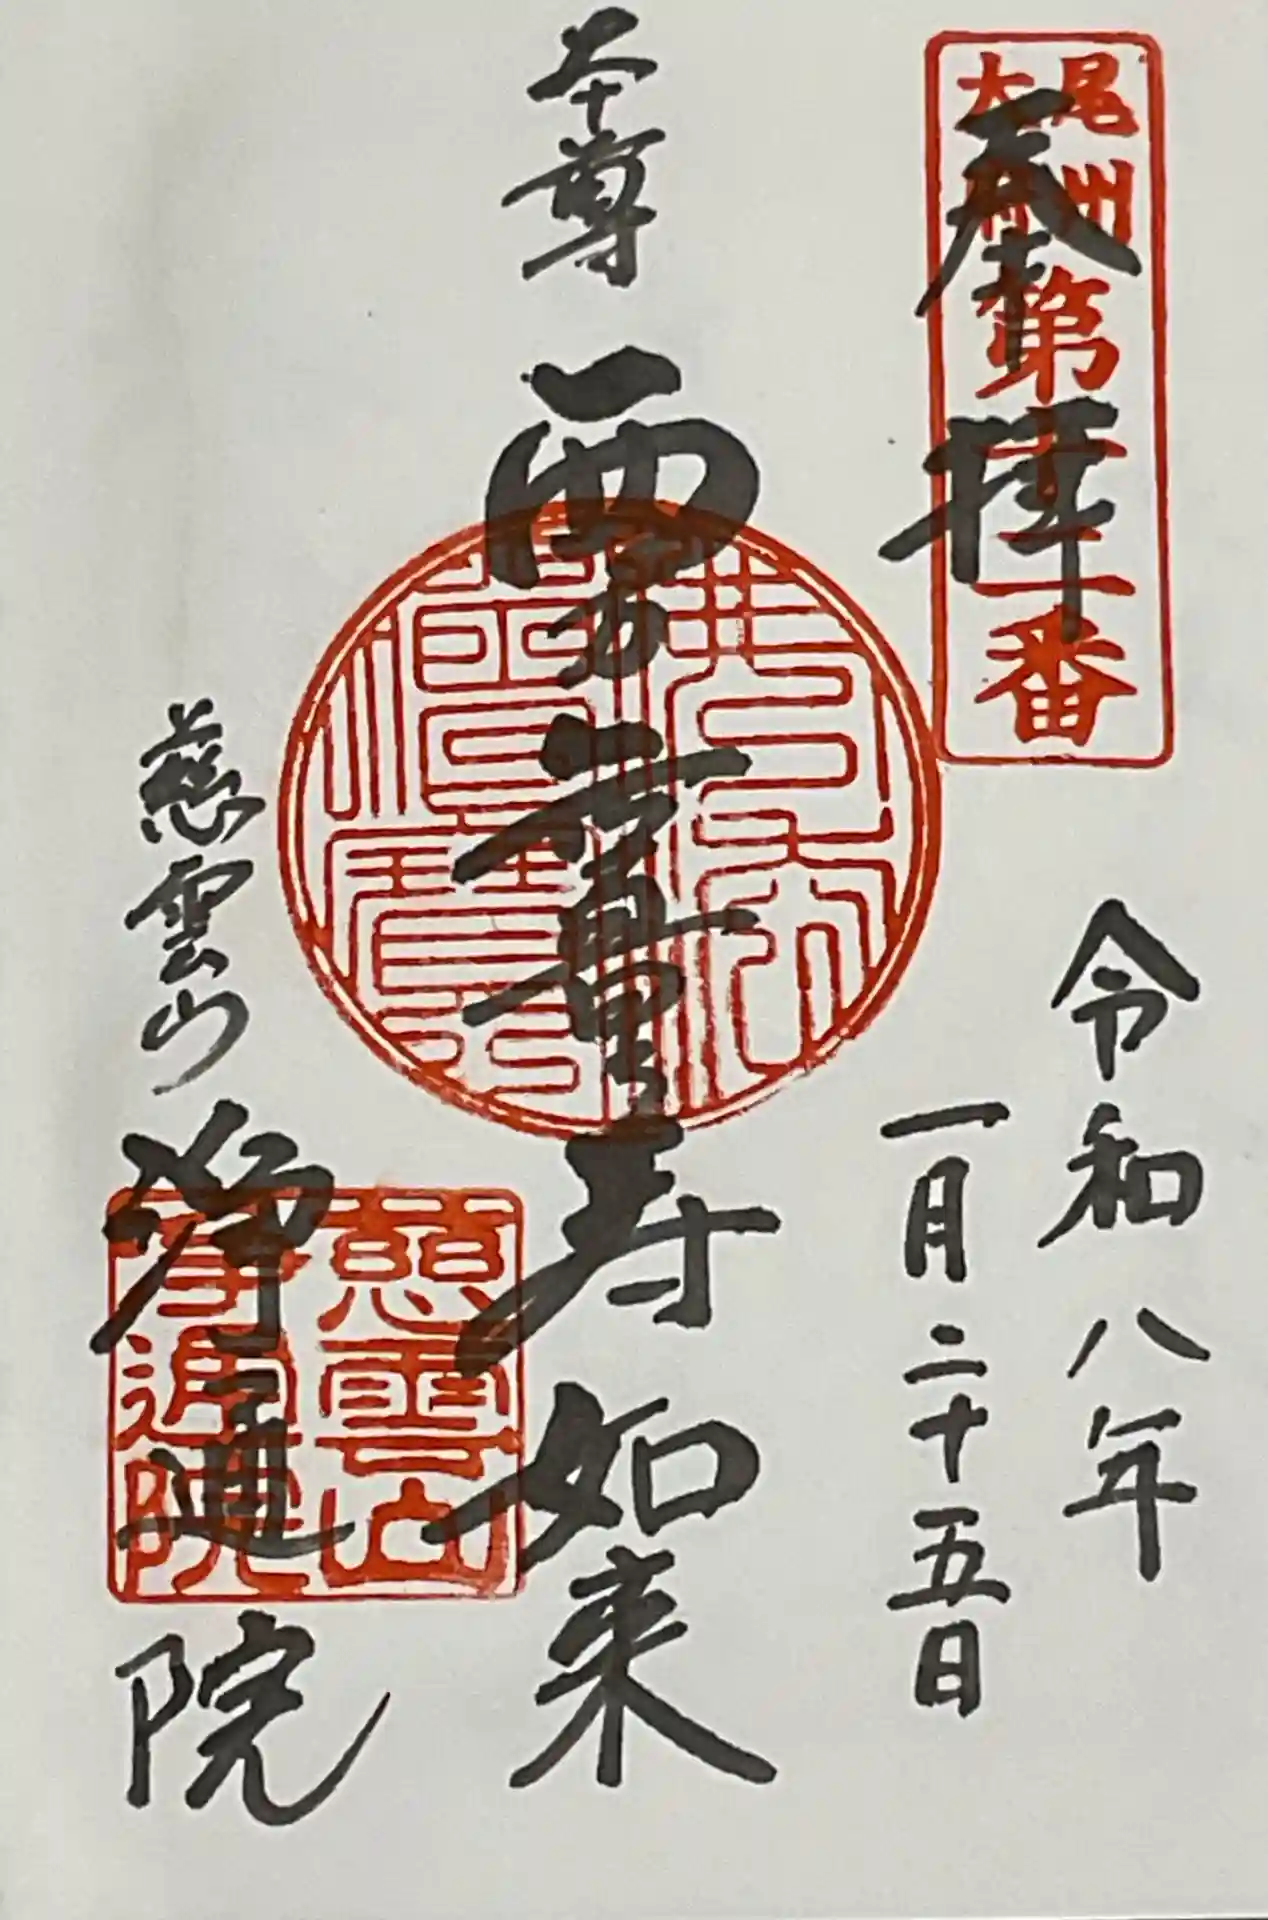 尾州
第
番
奉拝
令和八年
一月二十五日
本尊 西方無量寿如来
慈雲山 浄通院
慈雲山
浄通院